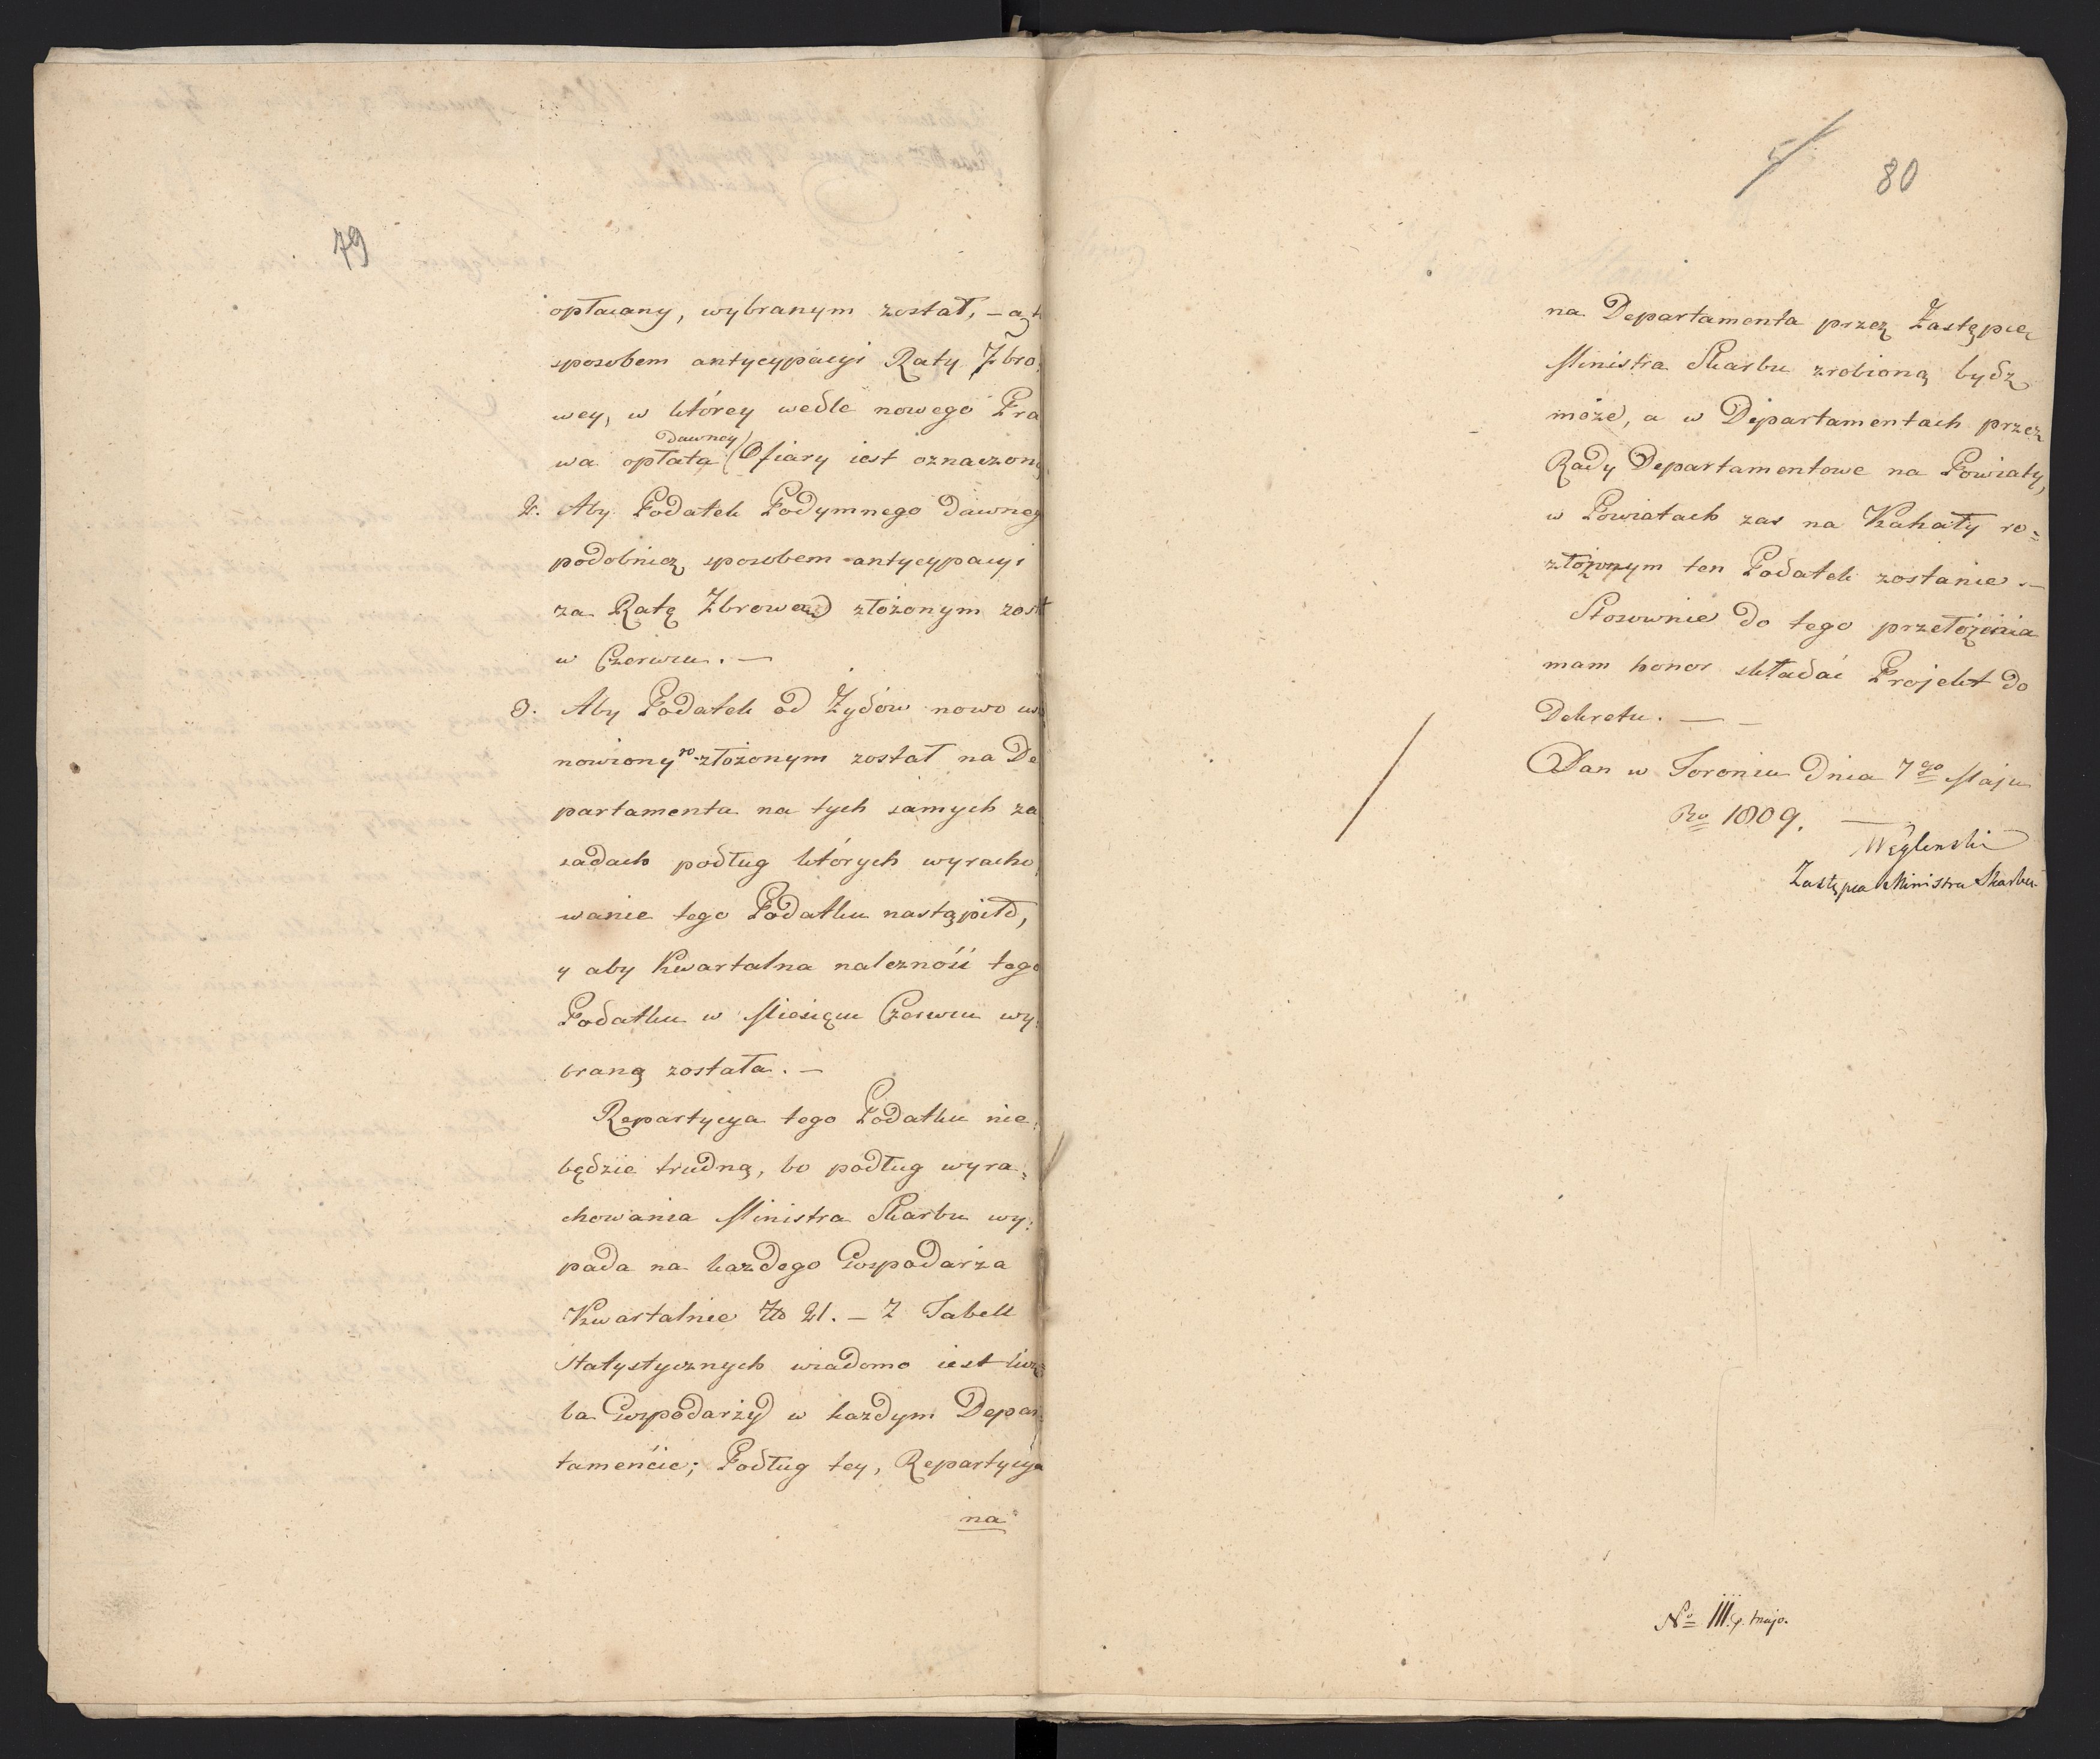 79
opłacany, wybranym został, – a
sposobem antycypacyi Raty Zbro
wey, w którey wedle nowego Pra
dawney
wa opłata Ofiary iest oznaczon
2. Aby Podatek Podymnego dawneg
podobnież sposobem antycypacyi
za Ratę Zbrową złożonym zost
w Czerwcu. –
3. Aby Podatek od Żydów nowo us
nowiony rozłożonym został na De
partamenta na tych samych za
sadach podług których wyracho
wanie tego Podatku nastąpiło,
y aby Kwartalna należność tego
Podatku w Miesiącu Czerwcu wy:
braną została. –
Repartycya tego Podatku nie:
będzie trudną, bo podług wyra=
chowania Ministra Skarbu wy:
pada na każdego Gospodarza
Kwartalnie Zło 21. – Z Tabell
Statystycznych wiadomo iest licz
ba Gospodarzy w każdym Depar
tamencie; Podług tey, Repartycya
na
5
80
na Departamenta przez Zastępcę
Ministra Skarbu zrobioną bydź
może, a w Departamentach przez
Rady Departamentowe na Powiaty,
w Powiatach zas na Kahały ro=
złożonym ten Podatek zostanie. –
Stosownie do tego przełożenia
mam honor składać Projekt do
Dekretu. – –
Dan w Toroniu Dnia 7go Maju
Ro 1809. –
Węglenski
Zastępca Ministra Skarbu
No III. majo.